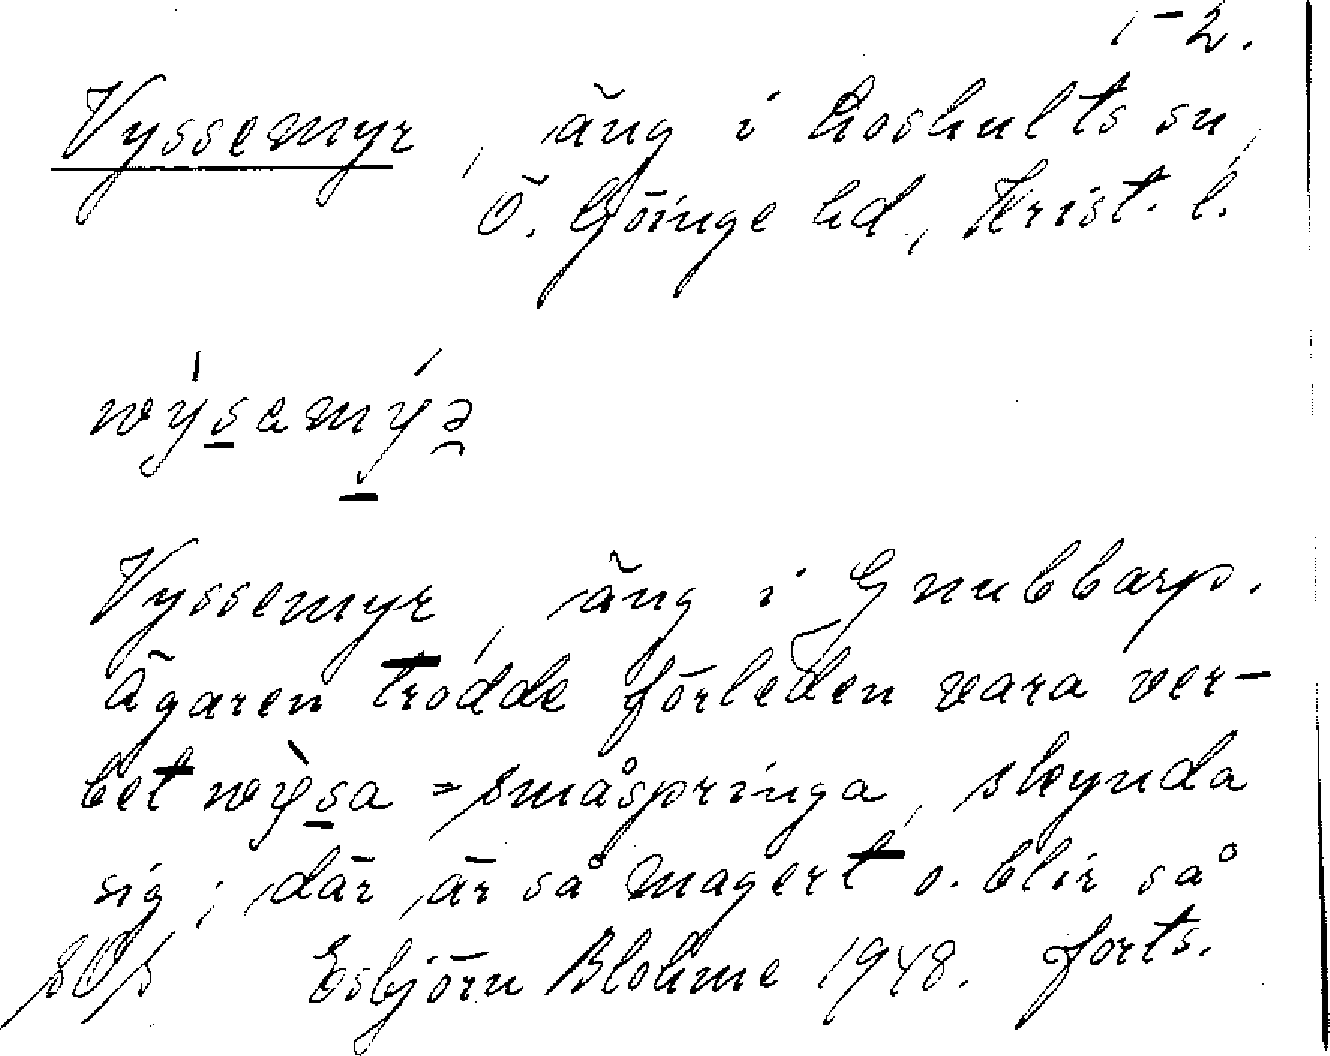 1-2.
Vyssemyr, äng i Loshults sn,
Ö. Göinge hd, Krist. l.
wýsemýə
Vyssemyr, äng i Gnubbarp.
Ägaren trodde förleden vara ver-
bet wỳsa = småspringa, skynda
sig; där är så magert o. blir så
Esbjörn Blohmé 1948. forts.